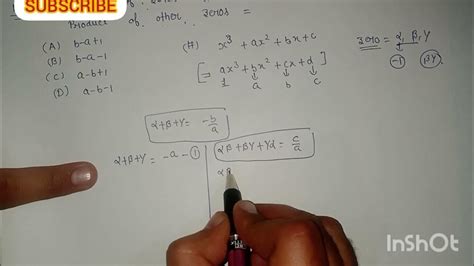 SUBSCRIBE
Product of other zeros =
(A) b-a+1
(B) b-a-1
(C) a-b+1
(D) a-b-1
(#) x³ + ax² + bx + c
[= ax³ + bx² + cx + d]
1 a b c
zeros = α, β, γ
-1 βγ
α+β+γ = -b/a
α+β+γ = -a - ①
αβ+βγ+γα = c/a
αβ
InShOt